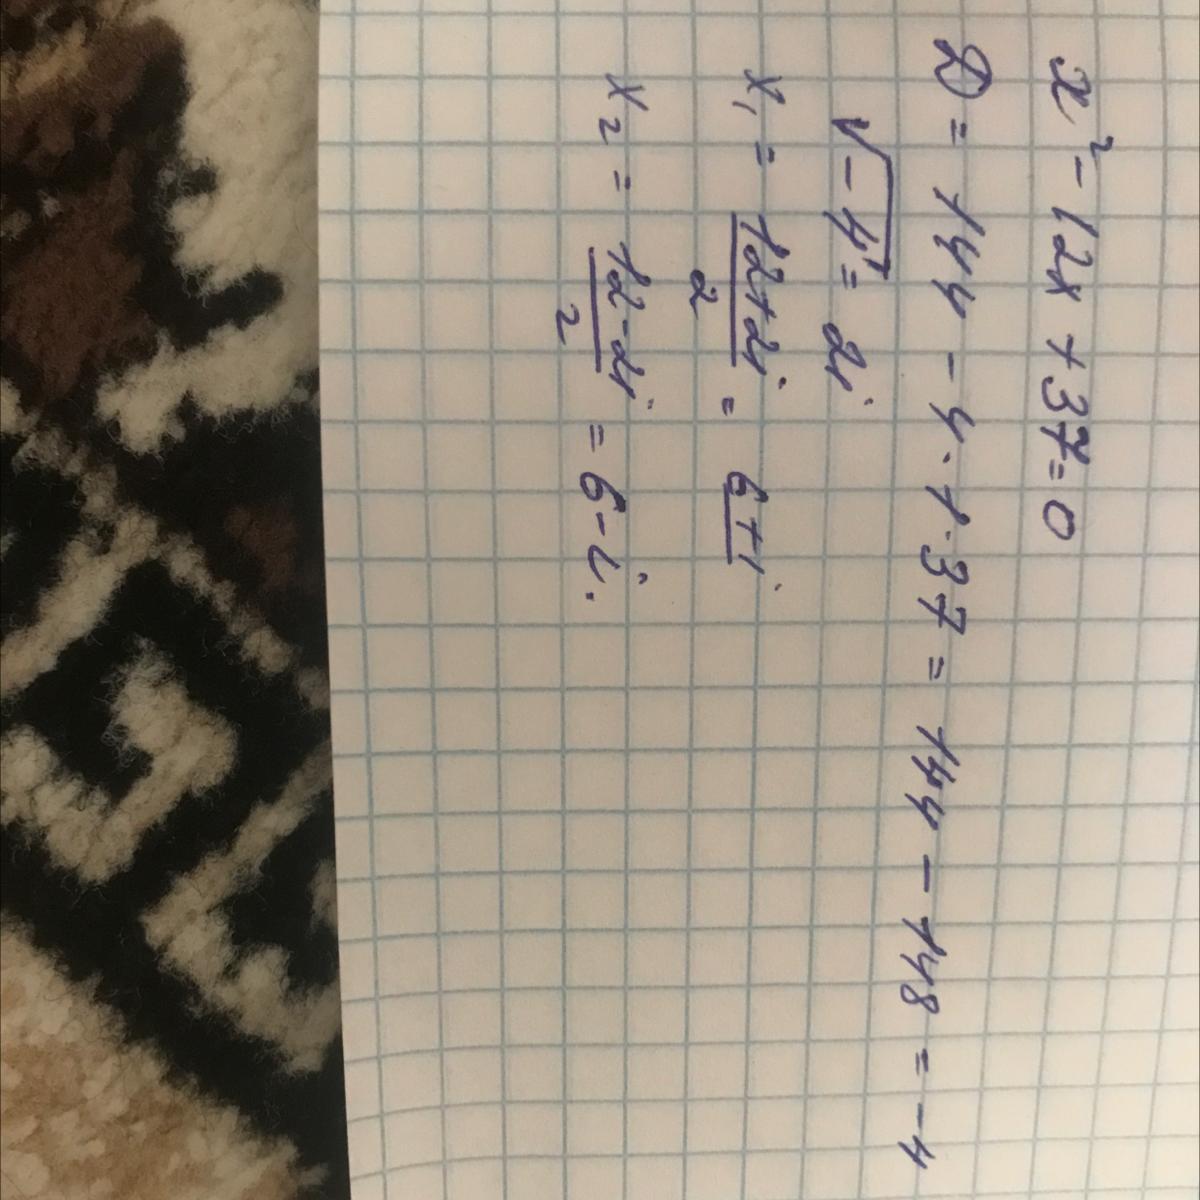 x² - 12x + 37 = 0
D = 144 - 4 · 1 · 37 = 144 - 148 = -4
√-4 = 2i
x₁ = (12+2i)/2 = 6+i
x₂ = (12-2i)/2 = 6-i.